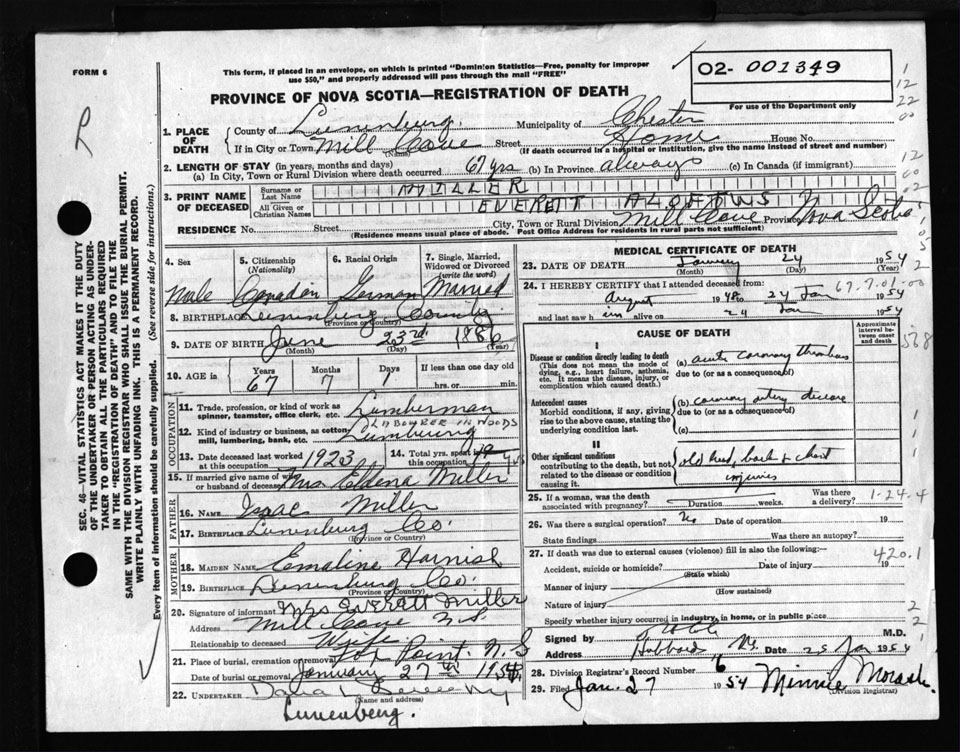 FORM 6
This form, if placed in an envelope, on which is printed "Dominion Statistics—Free, penalty for improper
use $50," and properly addressed will pass through the mail "FREE"
02- 001349
For use of the Department only
PROVINCE OF NOVA SCOTIA—REGISTRATION OF DEATH
1. PLACE OF DEATH { County of Lunenburg Municipality of Chester
If in City or Town Mill Cove (Name) Street Home House No.
(If death occurred in a hospital or institution, give the name instead of street and number)
2. LENGTH OF STAY (in years, months and days)
(a) In City, Town or Rural Division where death occurred 67 yrs (b) In Province always (c) In Canada (if immigrant)
3. PRINT NAME OF DECEASED { Surname or Last Name MILLER
All Given or Christian Names EVERETT
RESIDENCE No. Street City, Town or Rural Division Mill Cove Province Nova Scotia
(Residence means usual place of abode. Post Office Address for residents in rural parts not sufficient)
SEC. 46—VITAL STATISTICS ACT MAKES IT THE DUTY
OF THE UNDERTAKER OR PERSON ACTING AS UNDER-
TAKER TO OBTAIN ALL THE PARTICULARS REQUIRED
IN THE "REGISTRATION OF DEATH" AND TO FILE THE
SAME WITH THE DIVISION REGISTRAR WHO SHALL ISSUE THE BURIAL PERMIT.
WRITE PLAINLY WITH UNFADING INK. THIS IS A PERMANENT RECORD.
Every item of information should be carefully supplied. (See reverse side for instructions.)
4. Sex Male
5. Citizenship (Nationality) Canadian
6. Racial Origin German
7. Single, Married, Widowed or Divorced (write the word) Married
8. BIRTHPLACE Lunenburg County
(Province or Country)
9. DATE OF BIRTH June 23rd 1886
(Month) (Day) (Year)
10. AGE in Years 67 Months 7 Days 1 If less than one day old hrs. or min.
OCCUPATION
11. Trade, profession, or kind of work as
spinner, teamster, office clerk, etc. Lumberman
LABOURER IN WOODS
12. Kind of industry or business, as cotton-
mill, lumbering, bank, etc. Lumbering
13. Date deceased last worked
at this occupation 1923
14. Total yrs. spent in
this occupation
15. If married give name of wife
or husband of deceased Mrs. Eldena Miller
FATHER
16. Name Isaac Miller
17. Birthplace Lunenburg Co.
(Province or Country)
MOTHER
18. MAIDEN NAME Emaline Harnish
19. BIRTHPLACE Lunenburg Co.
(Province or Country)
20. Signature of informant Mrs Everatt Miller
Address Mill Cove N.S
Relationship to deceased Wife
21. Place of burial, cremation or removal Fox Point. N.S
Date of burial or removal January 27th 1954
22. UNDERTAKER Dana L
(Name and address)
Lunenberg.
MEDICAL CERTIFICATE OF DEATH
23. DATE OF DEATH January 24 1954
(Month) (Day) (Year)
24. I HEREBY CERTIFY that I attended deceased from:
August 1948 to 24 Jan 1954
and last saw him alive on 24 Jan 1954
CAUSE OF DEATH
Approximate interval between onset and death
I
Disease or condition directly leading to death
(This does not mean the mode of
dying, e.g., heart failure, asthenia,
etc. It means the disease, injury, or
complication which caused death.)
(a) acute coronary thrombosis
due to (or as a consequence of)
Antecedent causes
Morbid conditions, if any, giving
rise to the above cause, stating the
underlying condition last.
(b) coronary artery disease
due to (or as a consequence of)
(c)
II
Other significant conditions
contributing to the death, but not
related to the disease or condition
causing it.
old head, back & chest
injuries
25. If a woman, was the death
associated with pregnancy? Duration weeks. Was there a delivery?
1-24-4
26. Was there a surgical operation? No Date of operation 19
State findings Was there an autopsy?
27. If death was due to external causes (violence) fill in also the following:—
420.1
Accident, suicide or homicide? Date of injury 19
(State which)
Manner of injury
(How sustained)
Nature of injury
Specify whether injury occurred in industry, in home, or in public place
Signed by M.D.
Address Hubbards N.S. Date 25 Jan 1954
28. Division Registrar's Record Number 6
29. Filed Jan. 27 1954 Minnie Morash.
(Division Registrar)